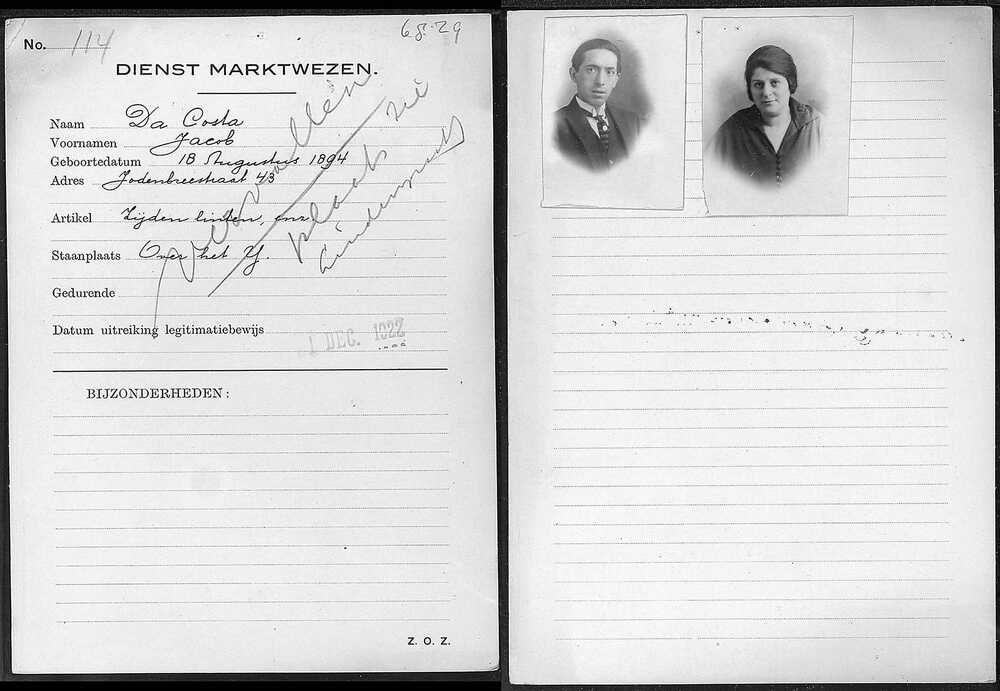 No. 114
68.29
DIENST MARKTWEZEN.
Naam Da Costa
Voornamen Jacob
Geboortedatum 18 Augustus 1894
Adres Jodenbreestraat 43
Artikel Zijden linten, enz.
Staanplaats Over het Y.
Gedurende
Datum uitreiking legitimatiebewijs 1 DEC. 1922
vervallen
plaats zie
BIJZONDERHEDEN:
Z. O. Z.